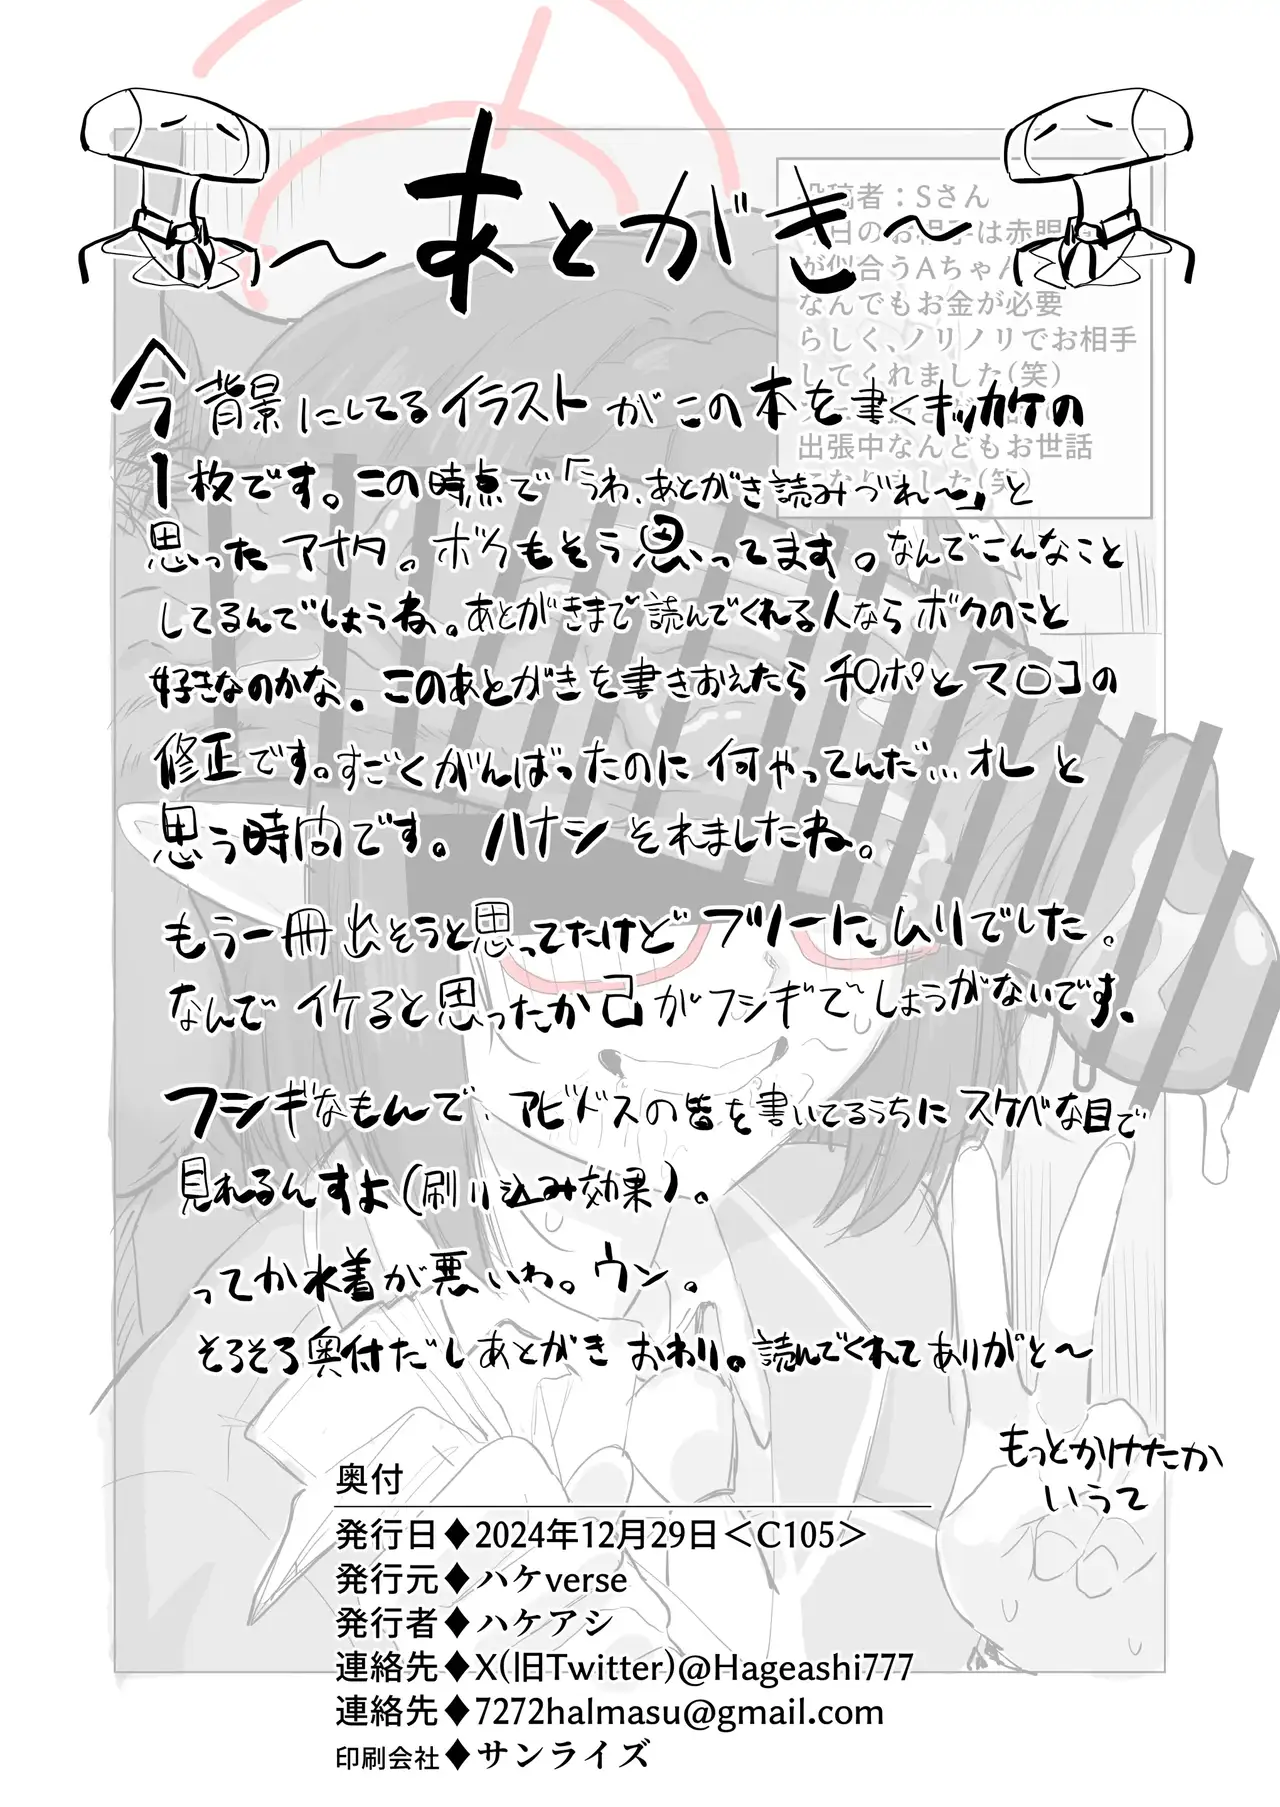 ～あとがき～
今背景にしてるイラストがこの本を書くキッカケの
1枚です。この時点で「うわ、あとがき読みづれ～」と
思ったアナタ。ボクもそう思ってます。なんでこんなこと
してるんでしょうね。あとがきまで読んでくれる人ならボクのこと
好きなのかな。このあとがきを書きおえたらチ〇ポとマ〇コの
修正です。すごくがんばったのに何やってんだ…オレと
思う時間です。ハナシそれましたね。
もう一冊出そうと思ってたけどフツーにムリでした。
なんでイケると思ったか己がフシギでしょうがないです。
フシギなもんで、アビドスの皆を書いてるうちにスケベな目で
見れるんすよ(刷り込み効果)。
ってか水着が悪いわ。ウン。
そろそろ奥付だしあとがきおわり。読んでくれてありがと～
もっとかけたか
いうて
奥付
発行日♦2024年12月29日＜C105＞
発行元♦ハケverse
発行者♦ハケアシ
連絡先♦X(旧Twitter)@Hageashi777
連絡先♦7272halmasu@gmail.com
印刷会社♦サンライズ